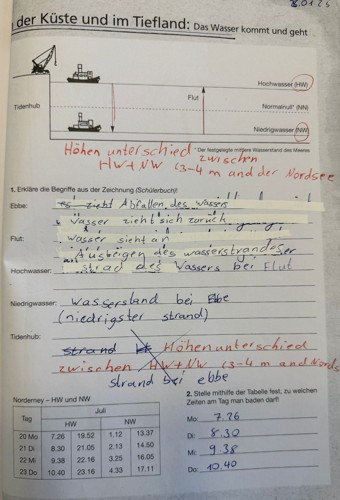 8.01.25
der Küste und im Tiefland: Das Wasser kommt und geht
Hochwasser (HW)
Flut
Tidenhub
Normalnull* (NN)
Niedrigwasser (NW)
* Der festgelegte mittlere Wasserstand des Meeres
Höhenunterschied zwischen
HW+NW (3-4 m and der Nordsee
1. Erkläre die Begriffe aus der Zeichnung (Schülerbuch)!
Ebbe: Abfallen des Wassers
wasser zieht sich zurück
Flut: wasser sieht an
Austeigen des wasserstrandes er
Hochwasser: strad des Wassers bei Flut
Niedrigwasser: wasserstand bei Ebbe
(niedrigster strand)
Tidenhub:
strand Höhenunterschied
zwischen HW+NW (3-4 m and Nords
strand bei ebbe
Norderney – HW und NW
Tag Juli
HW NW
20 Mo 7.26 19.52 1.12 13.37
21 Di 8.30 21.05 2.13 14.50
22 Mi 9.38 22.16 3.25 16.05
23 Do 10.40 23.16 4.33 17.11
2. Stelle mithilfe der Tabelle fest, zu welchen
Zeiten am Tag man baden darf!
Mo: 7.26
Di: 8.30
Mi: 9.38
Do: 10.40